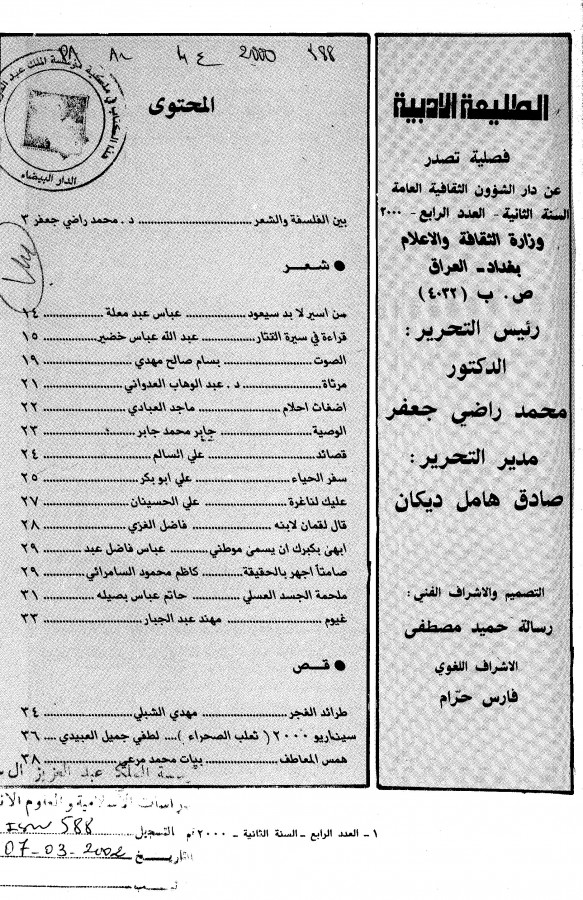 الطليعة الادبية
فصلية تصدر
عن دار الشؤون الثقافية العامة
السنة الثانية - العدد الرابع - ٢٠٠٠
وزارة الثقافة والاعلام
بغداد - العراق
ص. ب (٤٠٣٢)
رئيس التحرير :
الدكتور
محمد راضي جعفر
مدير التحرير :
صادق هامل ديكان
التصميم والاشراف الفني :
رسالة حميد مصطفى
الاشراف اللغوي
فارس حرّام
2000 588
الدار البيضاء
المحتوى
بين الفلسفة والشعر ........ د . محمد راضي جعفر ٣
● شعـر
من اسير لا بد سيعود ........ عباس عبد معلة ........ ١٤
قراءة في سيرة القتار ........ عبد الله عباس خضير ........ ١٥
الصوت ........ بسام صالح مهدي ........ ١٩
مرثاة ........ د . عبد الوهاب العدواني ........ ٢١
اضغاث احلام ........ ماجد العبادي ........ ٢٢
الوصية ........ جابر محمد جابر ........ ٢٣
قصائد ........ علي السالم ........ ٢٤
سفر الحياء ........ علي ابو بكر ........ ٢٥
عليك لناغرة ........ علي الحسينان ........ ٢٧
قال لقمان لابنه ........ فاضل الغزي ........ ٢٨
ابهى بكبرك ان يسمى موطني ........ عباس فاضل عبد ........ ٢٩
صامتاً اجهر بالحقيقة ........ كاظم محمود السامرائي ........ ٢٩
ملحمة الجسد العسلي ........ حاتم عباس بصيله ........ ٣١
غيوم ........ مهند عبد الجبار ........ ٣٣
● قـص
طرائد الفجر ........ مهدي الشبلي ........ ٣٤
سيناريو ٢٠٠٠ ( ثعلب الصحراء ) .... لطفي جميل العبيدي .... ٣٦
همس المعاطف ........ بيات محمد مرعي ........ ٣٨
عبد العزيز آل س
١ - العدد الرابع - السنة الثانية - ٢٠٠٠م
التسجيل 588
التاريـخ 07-03-2002